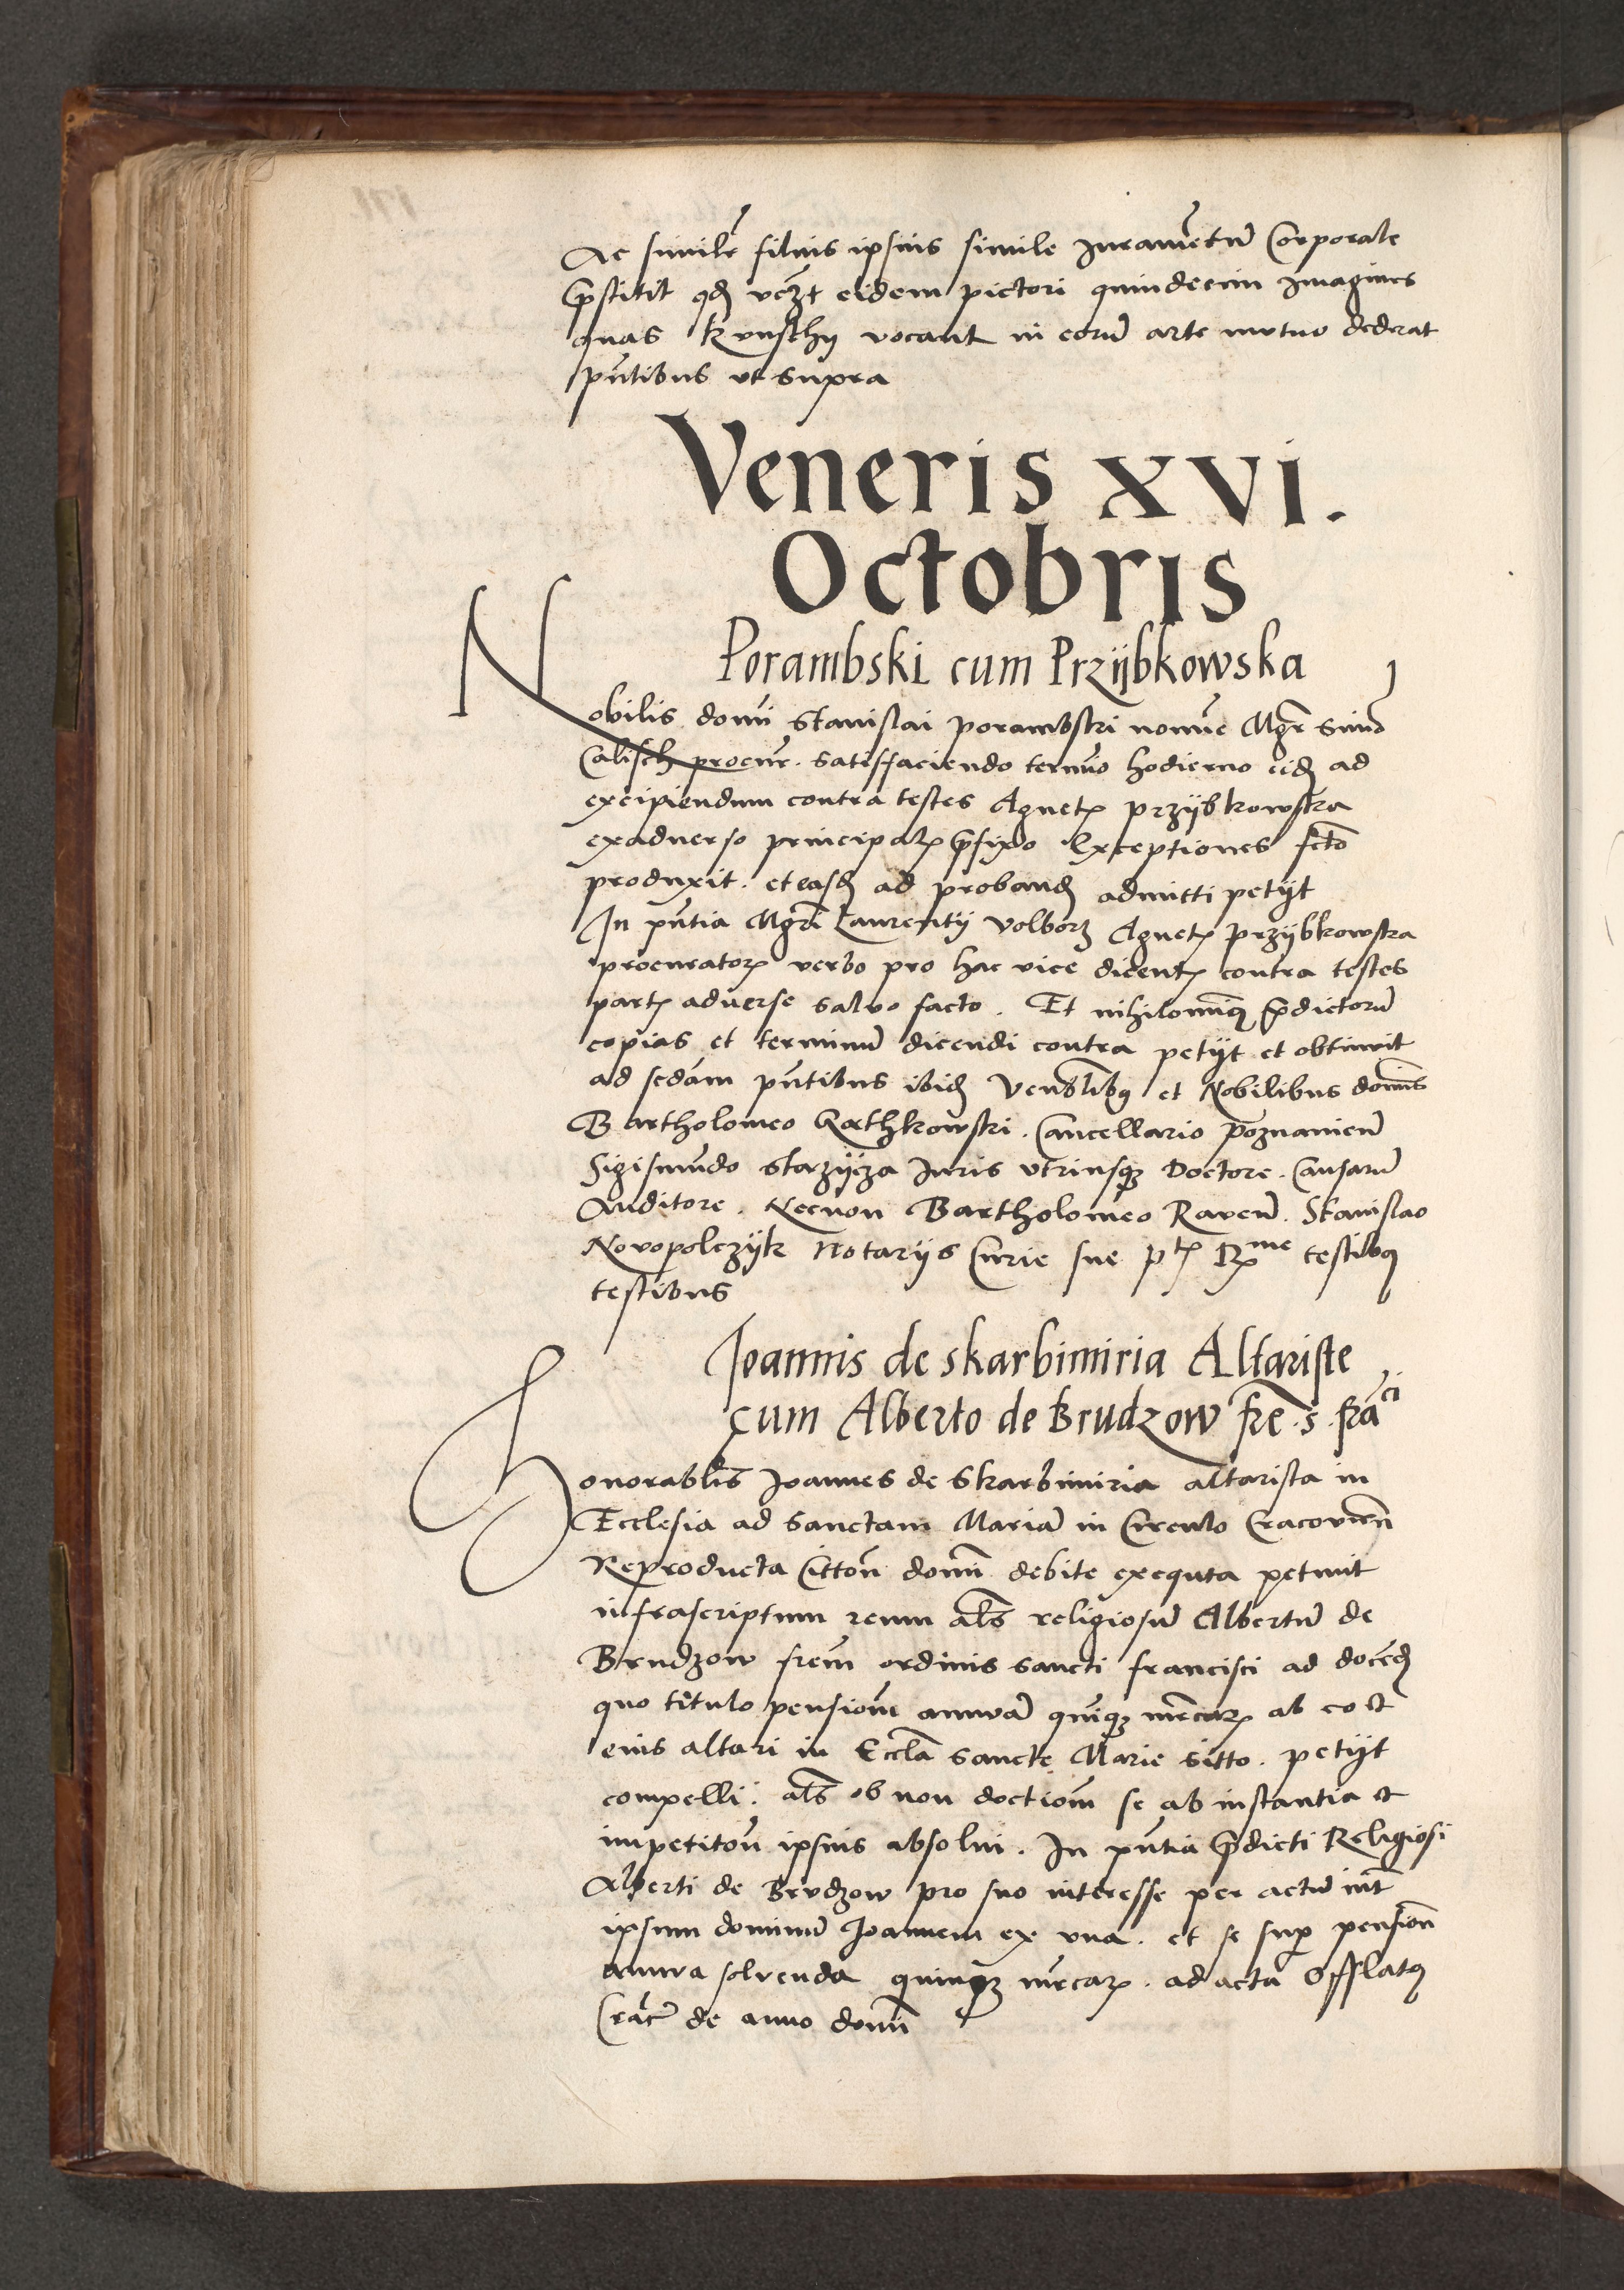 Ac similr̃ filius ipsius simile Juramẽtũ Corporale
p̃stitit qd̃ vcz̃t eidem pictori quindecim Imagines
quas kvnsthy vocant in eorũ arte mutuo dederat
pñtibus vt supra
Veneris XVI.
Octobris
Porambski cum Przijbkowska
Nobilis domĩ Stanislai porambski nomĩe Mgr̃ Simõ
Calisch procur̃. satisfaciendo termĩo hodierno eid̃ ad
excipiendum contra testes Agnetꝭ przijbkowska
exaduerso principalꝭ p̃fixo Exceptiones fctõ
produxit. et easd̃ ad proband̃ admitti petijt
In pñtia Mgrĩ Laurentij Volborz Agnetꝭ przijbkowska
procuratorꝭ verbo pro hac vice dicentꝭ contra testes
partꝭ aduerse saluo facto. Et nihilomĩꝯ p̃dictorũ
copias et terminũ dicendi contra petijt et obtinuit
ad sedãm pñtibus ibid̃ Venblĩbꝯ et Nobilibus domĩs
Bartholomeo Gathkowski. Cancellario poznanieñ
Sigismundo starzijza Juris vtriusqꝫ Doctore. Causarũ
Auditore. Necnon Bartholomeo Raveñ. Stanislao
Novopolczijk Notarijs Curie sue ptꝭ Rme testibꝯ
testibus
Joannis de skarbimiria Altariste
cum Alberto de Brudzow fre̅.s.frãci
Honorablĩs Joannes de Skarbimiria altarista in
Ecclesia ad sanctam Mariã in Circulo Cracovieñ
Reproducta Cittoñ domĩ debite exequta petiuit
infrascriptum reum als̃ religiosũ Albertũ de
Brudzow frẽm ordinis sancti francisci ad docẽd̃
quo titulo pensionẽ annuã quĩqꝫ mrcarꝭ ab eo et
eius altari in Eccl̃a sancte Marie sitto. petijt
compelli. als̃ ob non doctiom̃ se ab instantia et
impetitoñ ipsius absolui. In pñtia p̃dicti Religiosi
Alberti de Brvdzow pro suo interesse per actũ int̃
ipsum dominũ Joannem ex vna. et se sup̃ pensioñ
annua soluenda quinqꝫ mrcarꝭ. ad acta Offlatꝯ
Crac̃ de anno domĩ